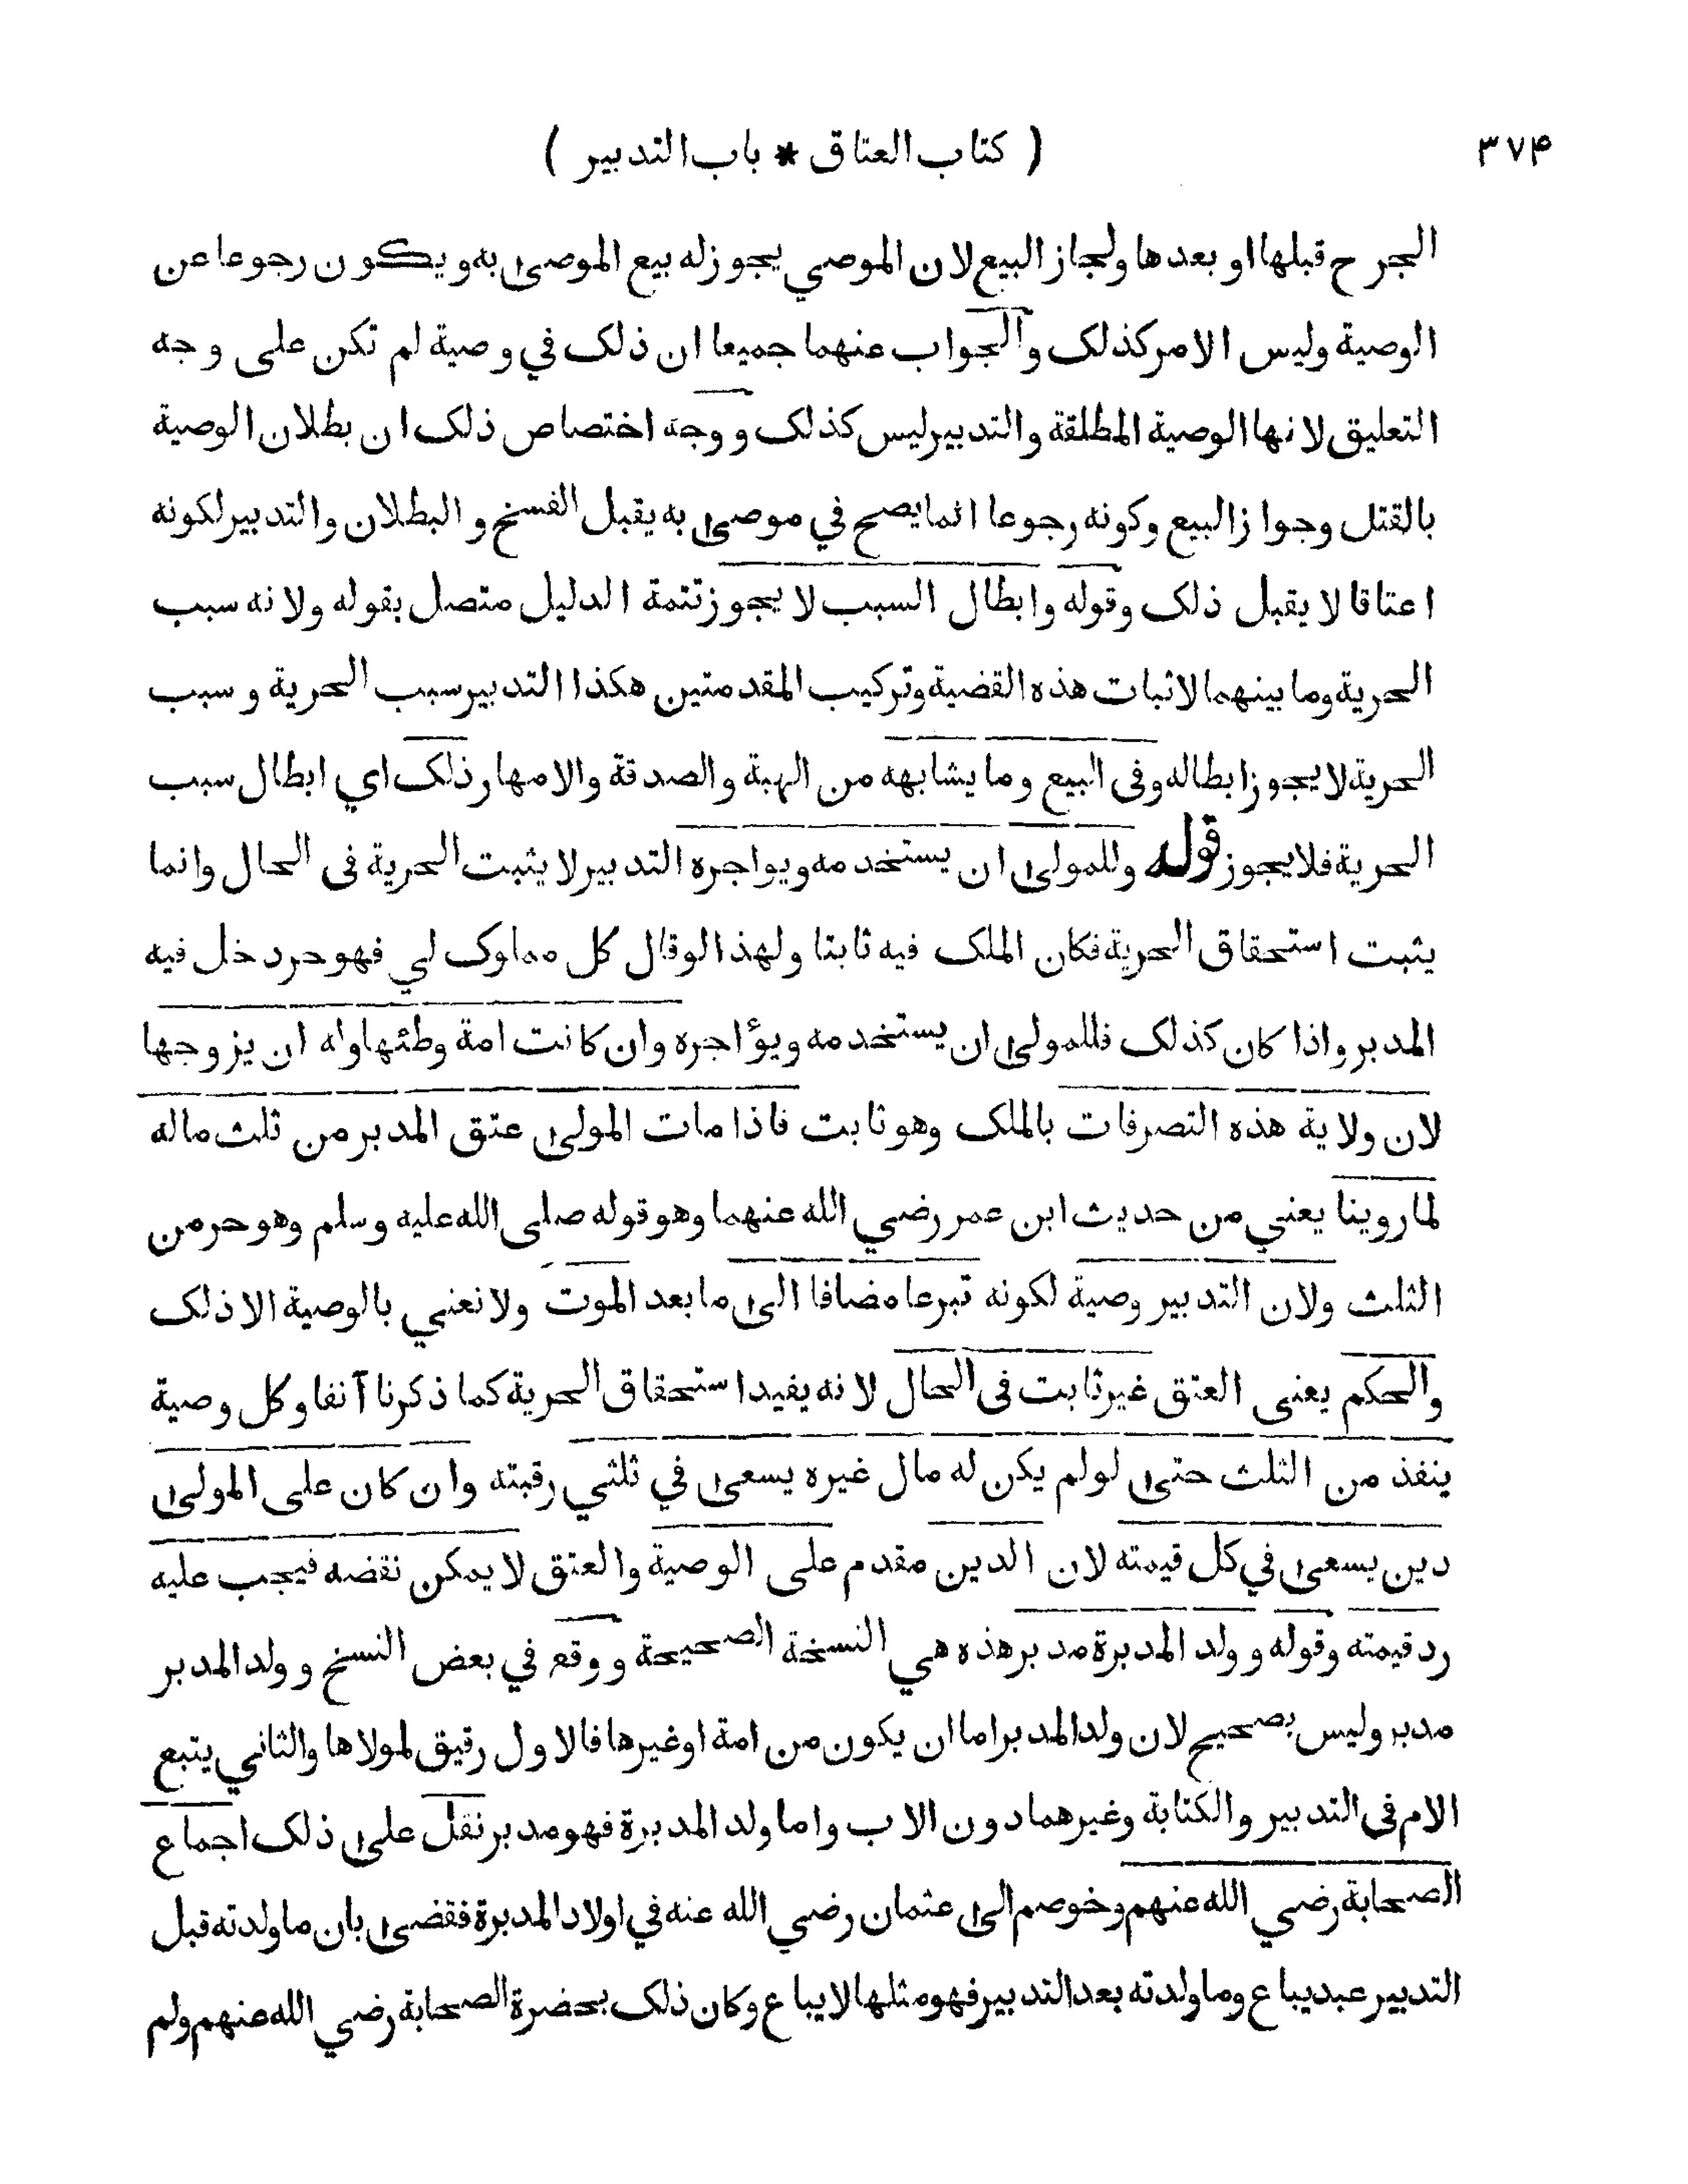 ٣٧۴
( كتاب العتاق * باب التدبير )
الجرح قبلها او بعدها ولجاز البيع لان الموصي يجوز له بيع الموصىٰ به ويكون رجوعا عن
الوصية وليس الامر كذلك والجواب عنهما جميعا ان ذلك في وصية لم تكن على وجه
التعليق لانها الوصية المطلقة والتدبير ليس كذلك ووجه اختصاص ذلك ان بطلان الوصية
بالقتل وجواز البيع وكونه رجوعا انما يصح في موصىٰ به يقبل الفسخ والبطلان والتدبير لكونه
اعتاقا لا يقبل ذلك وقوله وابطال السبب لا يجوز تتمة الدليل متصل بقوله ولانه سبب
الحرية وما بينهما لاثبات هذه القضية وتركيب المقدمتين هكذا التدبير سبب الحرية وسبب
الحرية لا يجوز ابطاله وفى البيع وما يشابهه من الهبة والصدقة والامهار ذلك اي ابطال سبب
الحرية فلا يجوز قوله وللمولىٰ ان يستخدمه ويواجره التدبير لا يثبت الحرية فى الحال وانما
يثبت استحقاق الحرية فكان الملك فيه ثابتا ولهذا لو قال كل مملوك لي فهو حر دخل فيه
المدبر واذا كان كذلك فللمولىٰ ان يستخدمه ويؤاجره وان كانت امة وطئها وله ان يزوجها
لان ولاية هذه التصرفات بالملك وهو ثابت فاذا مات المولىٰ عتق المدبر من ثلث ماله
لما روينا يعني من حديث ابن عمر رضي الله عنهما وهو قوله صلى الله عليه وسلم وهو حر من
الثلث ولان التدبير وصية لكونه تبرعا مضافا الىٰ ما بعد الموت ولا نعني بالوصية الا ذلك
والحكم يعنى العتق غير ثابت فى الحال لانه يفيد استحقاق الحرية كما ذكرنا آنفا وكل وصية
ينفذ من الثلث حتىٰ لو لم يكن له مال غيره يسعىٰ في ثلثي رقبته وان كان على المولىٰ
دين يسعىٰ في كل قيمته لان الدين مقدم على الوصية والعتق لا يمكن نقضه فيجب عليه
رد قيمته وقوله وولد المدبرة مدبر هذه هي النسخة الصحيحة ووقع في بعض النسخ وولد المدبر
مدبر وليس بصحيح لان ولد المدبر اما ان يكون من امة او غيرها فالاول رقيق لمولاها والثاني يتبع
الام فى التدبير والكتابة وغيرهما دون الاب واما ولد المدبرة فهو مدبر نقل علىٰ ذلك اجماع
الصحابة رضي الله عنهم وخوصم الىٰ عثمان رضي الله عنه في اولاد المدبرة فقضىٰ بان ما ولدته قبل
التدبير عبد يباع وما ولدته بعد التدبير فهو مثلها لا يباع وكان ذلك بحضرة الصحابة رضي الله عنهم ولم